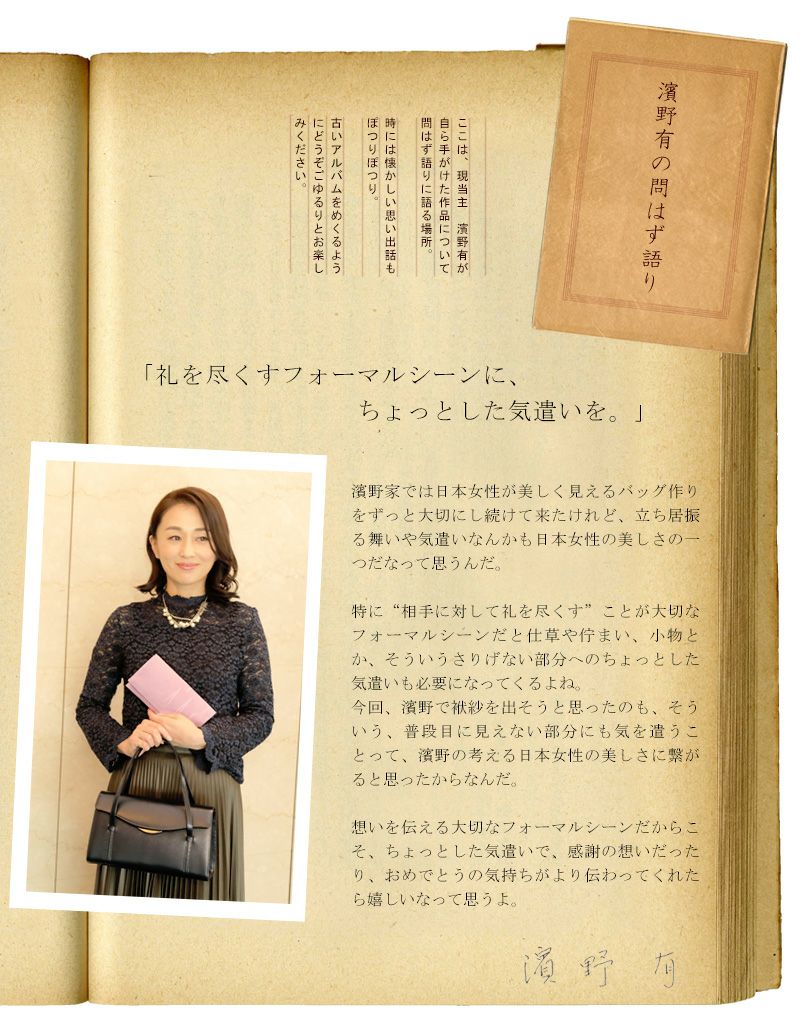 濱野有の問はず語り
ここは、現当主　濱野有が
自ら手がけた作品について
問はず語りに語る場所。
時には懐かしい思い出話も
ぽつりぽつり。
古いアルバムをめくるよう
にどうぞごゆるりとお楽し
みください。
「礼を尽くすフォーマルシーンに、
ちょっとした気遣いを。」
濱野家では日本女性が美しく見えるバッグ作り
をずっと大切にし続けて来たけれど、立ち居振
る舞いや気遣いなんかも日本女性の美しさの一
つだなって思うんだ。
特に“相手に対して礼を尽くす”ことが大切な
フォーマルシーンだと仕草や佇まい、小物と
か、そういうさりげない部分へのちょっとした
気遣いも必要になってくるよね。
今回、濱野で袱紗を出そうと思ったのも、そう
いう、普段目に見えない部分にも気を遣うこ
とって、濱野の考える日本女性の美しさに繋が
ると思ったからなんだ。
想いを伝える大切なフォーマルシーンだからこ
そ、ちょっとした気遣いで、感謝の想いだった
り、おめでとうの気持ちがより伝わってくれた
ら嬉しいなって思うよ。
濱野 有